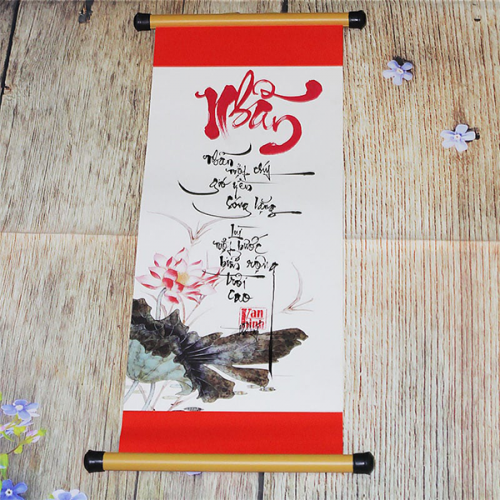 Nhẫn
Nhẫn
một chút
gió yên
sóng lặng
Lùi
một bước
biển rộng
trời
cao